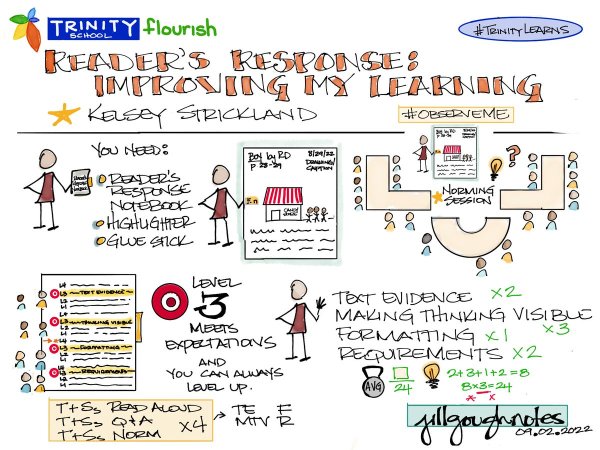 TRINITY
SCHOOL
flourish
#TRINITYLEARNS
READER'S RESPONSE:
IMPROVING MY LEARNING
KELSEY STRICKLAND
#OBSERVEME
YOU NEED:
READER'S
RESPONSE
NOTEBOOK
HIGHLIGHTER
GLUE STICK
Boy by RD
P 28-29
8/29/22
DRAWING/
CAPTION
CANDY
NORMING
SESSION
?
L4
L3 TEXT EVIDENCE
L2
L1
L4
L3 THINKING VISIBLE
L2
L1
L4
L3 FORMATTING
L2
L1
L4
L3 REQUIREMENTS
L2
L1
LEVEL
3
MEETS
EXPECTATIONS
AND
YOU CAN ALWAYS
LEVEL UP.
TEXT EVIDENCE ×2
MAKING THINKING VISIBLE
×3
FORMATTING ×1
REQUIREMENTS ×2
AVG
24
2+3+1+2=8
8×3=24
T+Ss READ ALOUD
T+Ss Q+A
T+Ss NORM
×4
TE F
MTV R
jillgoughnotes
09.02.2022